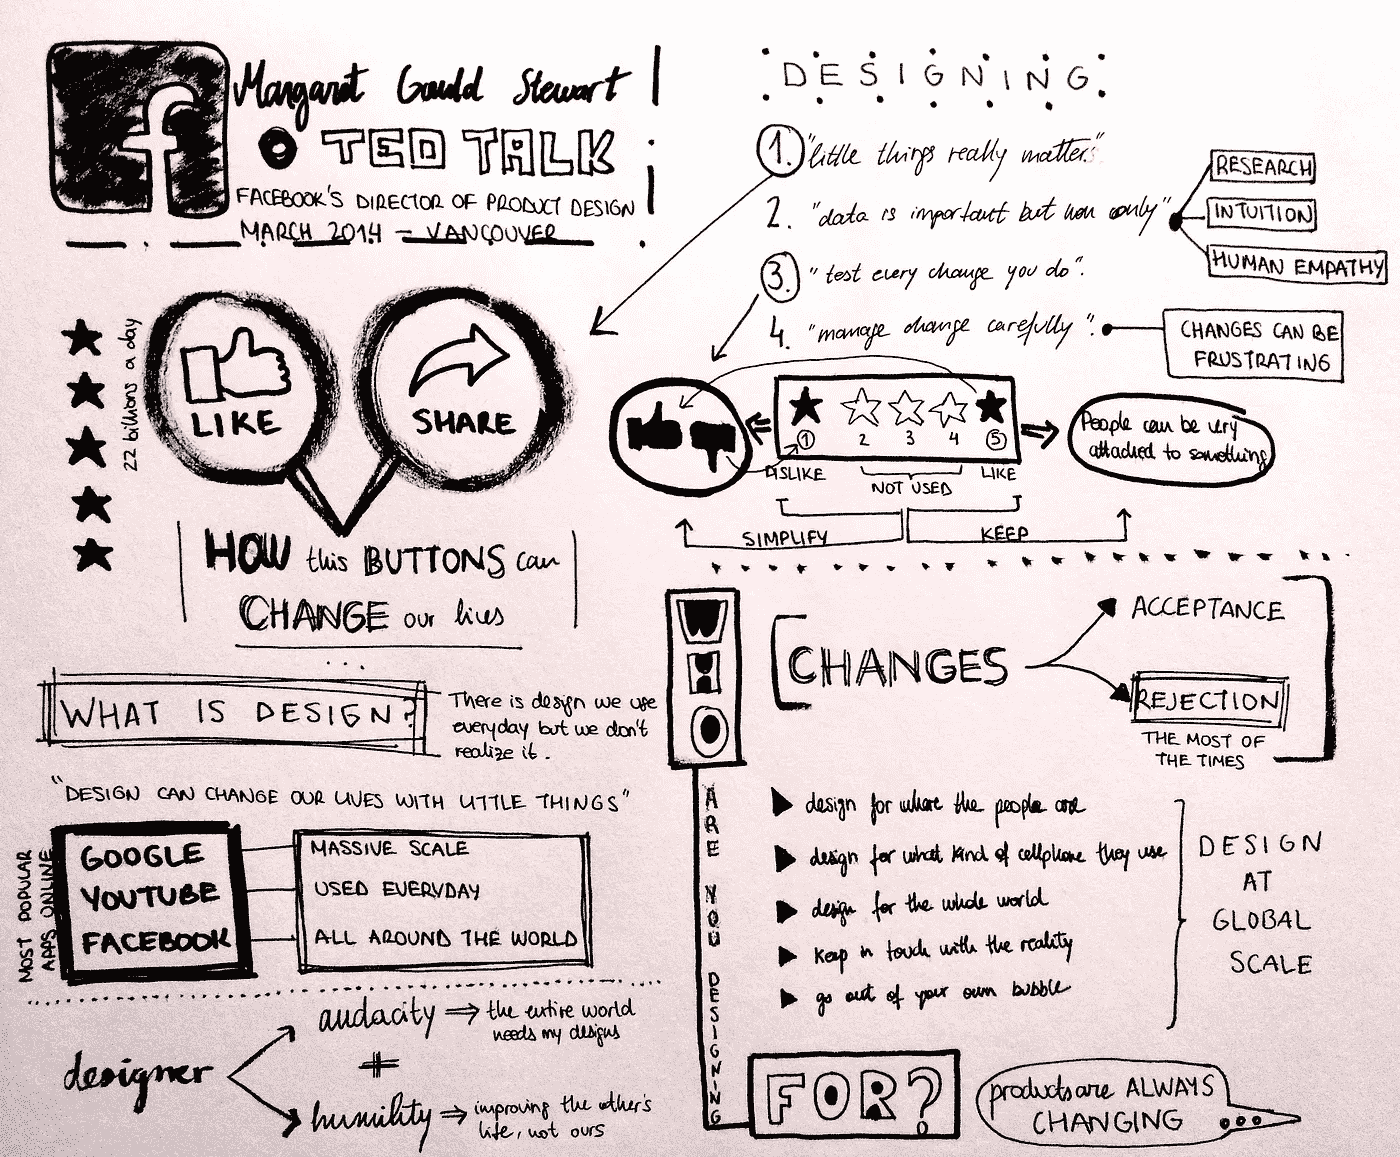 f
Margaret Gould Stewart
TED TALK
FACEBOOK'S DIRECTOR OF PRODUCT DESIGN
MARCH 2014 - VANCOUVER
22 billions a day
LIKE
SHARE
HOW this BUTTONS can
CHANGE our lives
WHAT IS DESIGN?
There is design we use
everyday but we don't
realize it.
"DESIGN CAN CHANGE OUR LIVES WITH LITTLE THINGS"
MOST POPULAR
APPS ONLINE
GOOGLE
YOUTUBE
FACEBOOK
MASSIVE SCALE
USED EVERYDAY
ALL AROUND THE WORLD
designer
audacity ⇒ the entire world
needs my designs
+
humility ⇒ improving the other's
life, not ours
DESIGNING
1. "little things really matters"
2. "data is important but non only"
RESEARCH
INTUITION
HUMAN EMPATHY
3. "test every change you do".
4. "manage change carefully".
CHANGES CAN BE
FRUSTRATING
1 2 3 4 5
DISLIKE
NOT USED
LIKE
People can be very
attached to something
SIMPLIFY
KEEP
WHO
ARE YOU DESIGNING
FOR?
CHANGES
ACCEPTANCE
REJECTION
THE MOST OF
THE TIMES
design for where the people are
design for what kind of cellphone they use
design for the whole world
keep in touch with the reality
go out of your own bubble
DESIGN
AT
GLOBAL
SCALE
products are ALWAYS
CHANGING